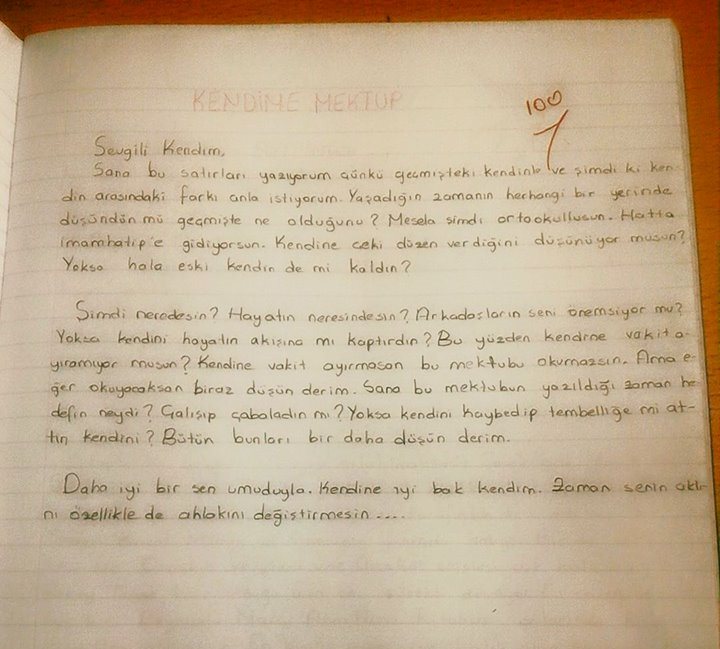 KENDİME MEKTUP
100
Sevgili Kendim,
Sana bu satırları yazıyorum çünkü geçmişteki kendinle ve şimdi ki ken-
din arasındaki farkı anla istiyorum. Yaşadığın zamanın herhangi bir yerinde
düşündün mü geçmişte ne olduğunu? Mesela şimdi ortookullusun. Hatta
imamhatip'e gidiyorsun. Kendine çeki düzen verdiğini düşünüyor musun?
Yoksa hala eski kendin de mi kaldın?
Şimdi neredesin? Hayatın neresindesin? Arkadaşların seni önemsiyor mu?
Yoksa kendini hayatın akışına mı kaptırdın? Bu yüzden kendine vakit a-
yıramıyor musun? Kendine vakit ayırmasan bu mektubu okumazsın. Ama e-
ğer okuyacaksan biraz düşün derim. Sana bu mektubun yazıldığı zaman he-
defin neydi? Çalışıp çabaladın mı? Yoksa kendini kaybedip tembelliğe mi at-
tın kendini? Bütün bunları bir daha düşün derim.
Daha iyi bir sen umuduyla. Kendine iyi bak kendim. Zaman senin aklı-
nı özellikle de ahlakını değiştirmesin....